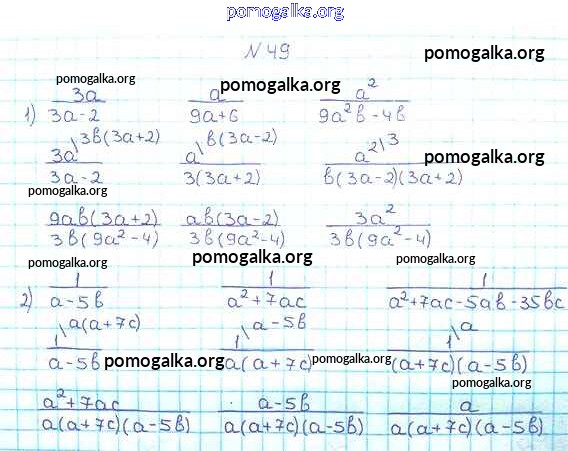 pomogalka.org
N 49 pomogalka.org
pomogalka.org pomogalka.org
1) 3a/(3a-2) a/(9a+6) a²/(9a²в-4в)
3a\3в(3a+2)/(3a-2) a\в(3a-2)/(3(3a+2)) a²\3/(в(3a-2)(3a+2)) pomogalka.org
pomogalka.org
9aв(3a+2)/(3в(9a²-4)) aв(3a-2)/(3в(9a²-4)) 3a²/(3в(9a²-4))
pomogalka.org pomogalka.org pomogalka.org
2) 1/(a-5в) 1/(a²+7ac) 1/(a²+7ac-5aв-35вc)
1\a(a+7c)/(a-5в) 1\a-5в/(a(a+7c)) 1\a/((a+7c)(a-5в))
pomogalka.org pomogalka.org pomogalka.org
(a²+7ac)/(a(a+7c)(a-5в)) (a-5в)/(a(a+7c)(a-5в)) a/(a(a+7c)(a-5в))